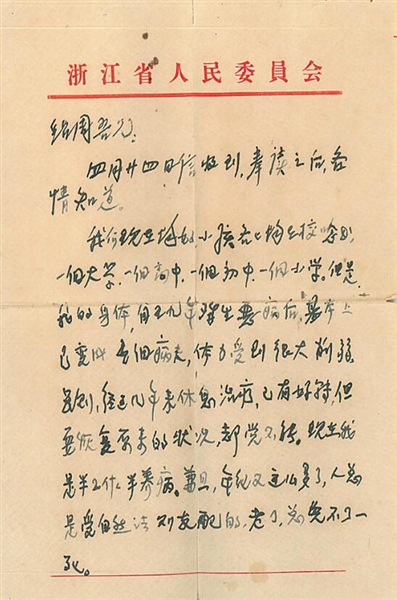 浙江省人民委員会
绍周吾兄:
四月廿四日信收到,奉读之后,各
情知道。
我们现在 小孩 均在校
一個大学,一個高中,一個初中,一個小学。但是,
我的身体,自五九年 生 病后,基本上
已变成 病夫,体力受到很大削弱
经过几年来休息治疗,已有好转,但
要恢复原来的状况,都觉不能。现在我
是半工作半养病。并且,年纪又这么多了,人总
是受自然法则支配的,老了,总免不了一
死。